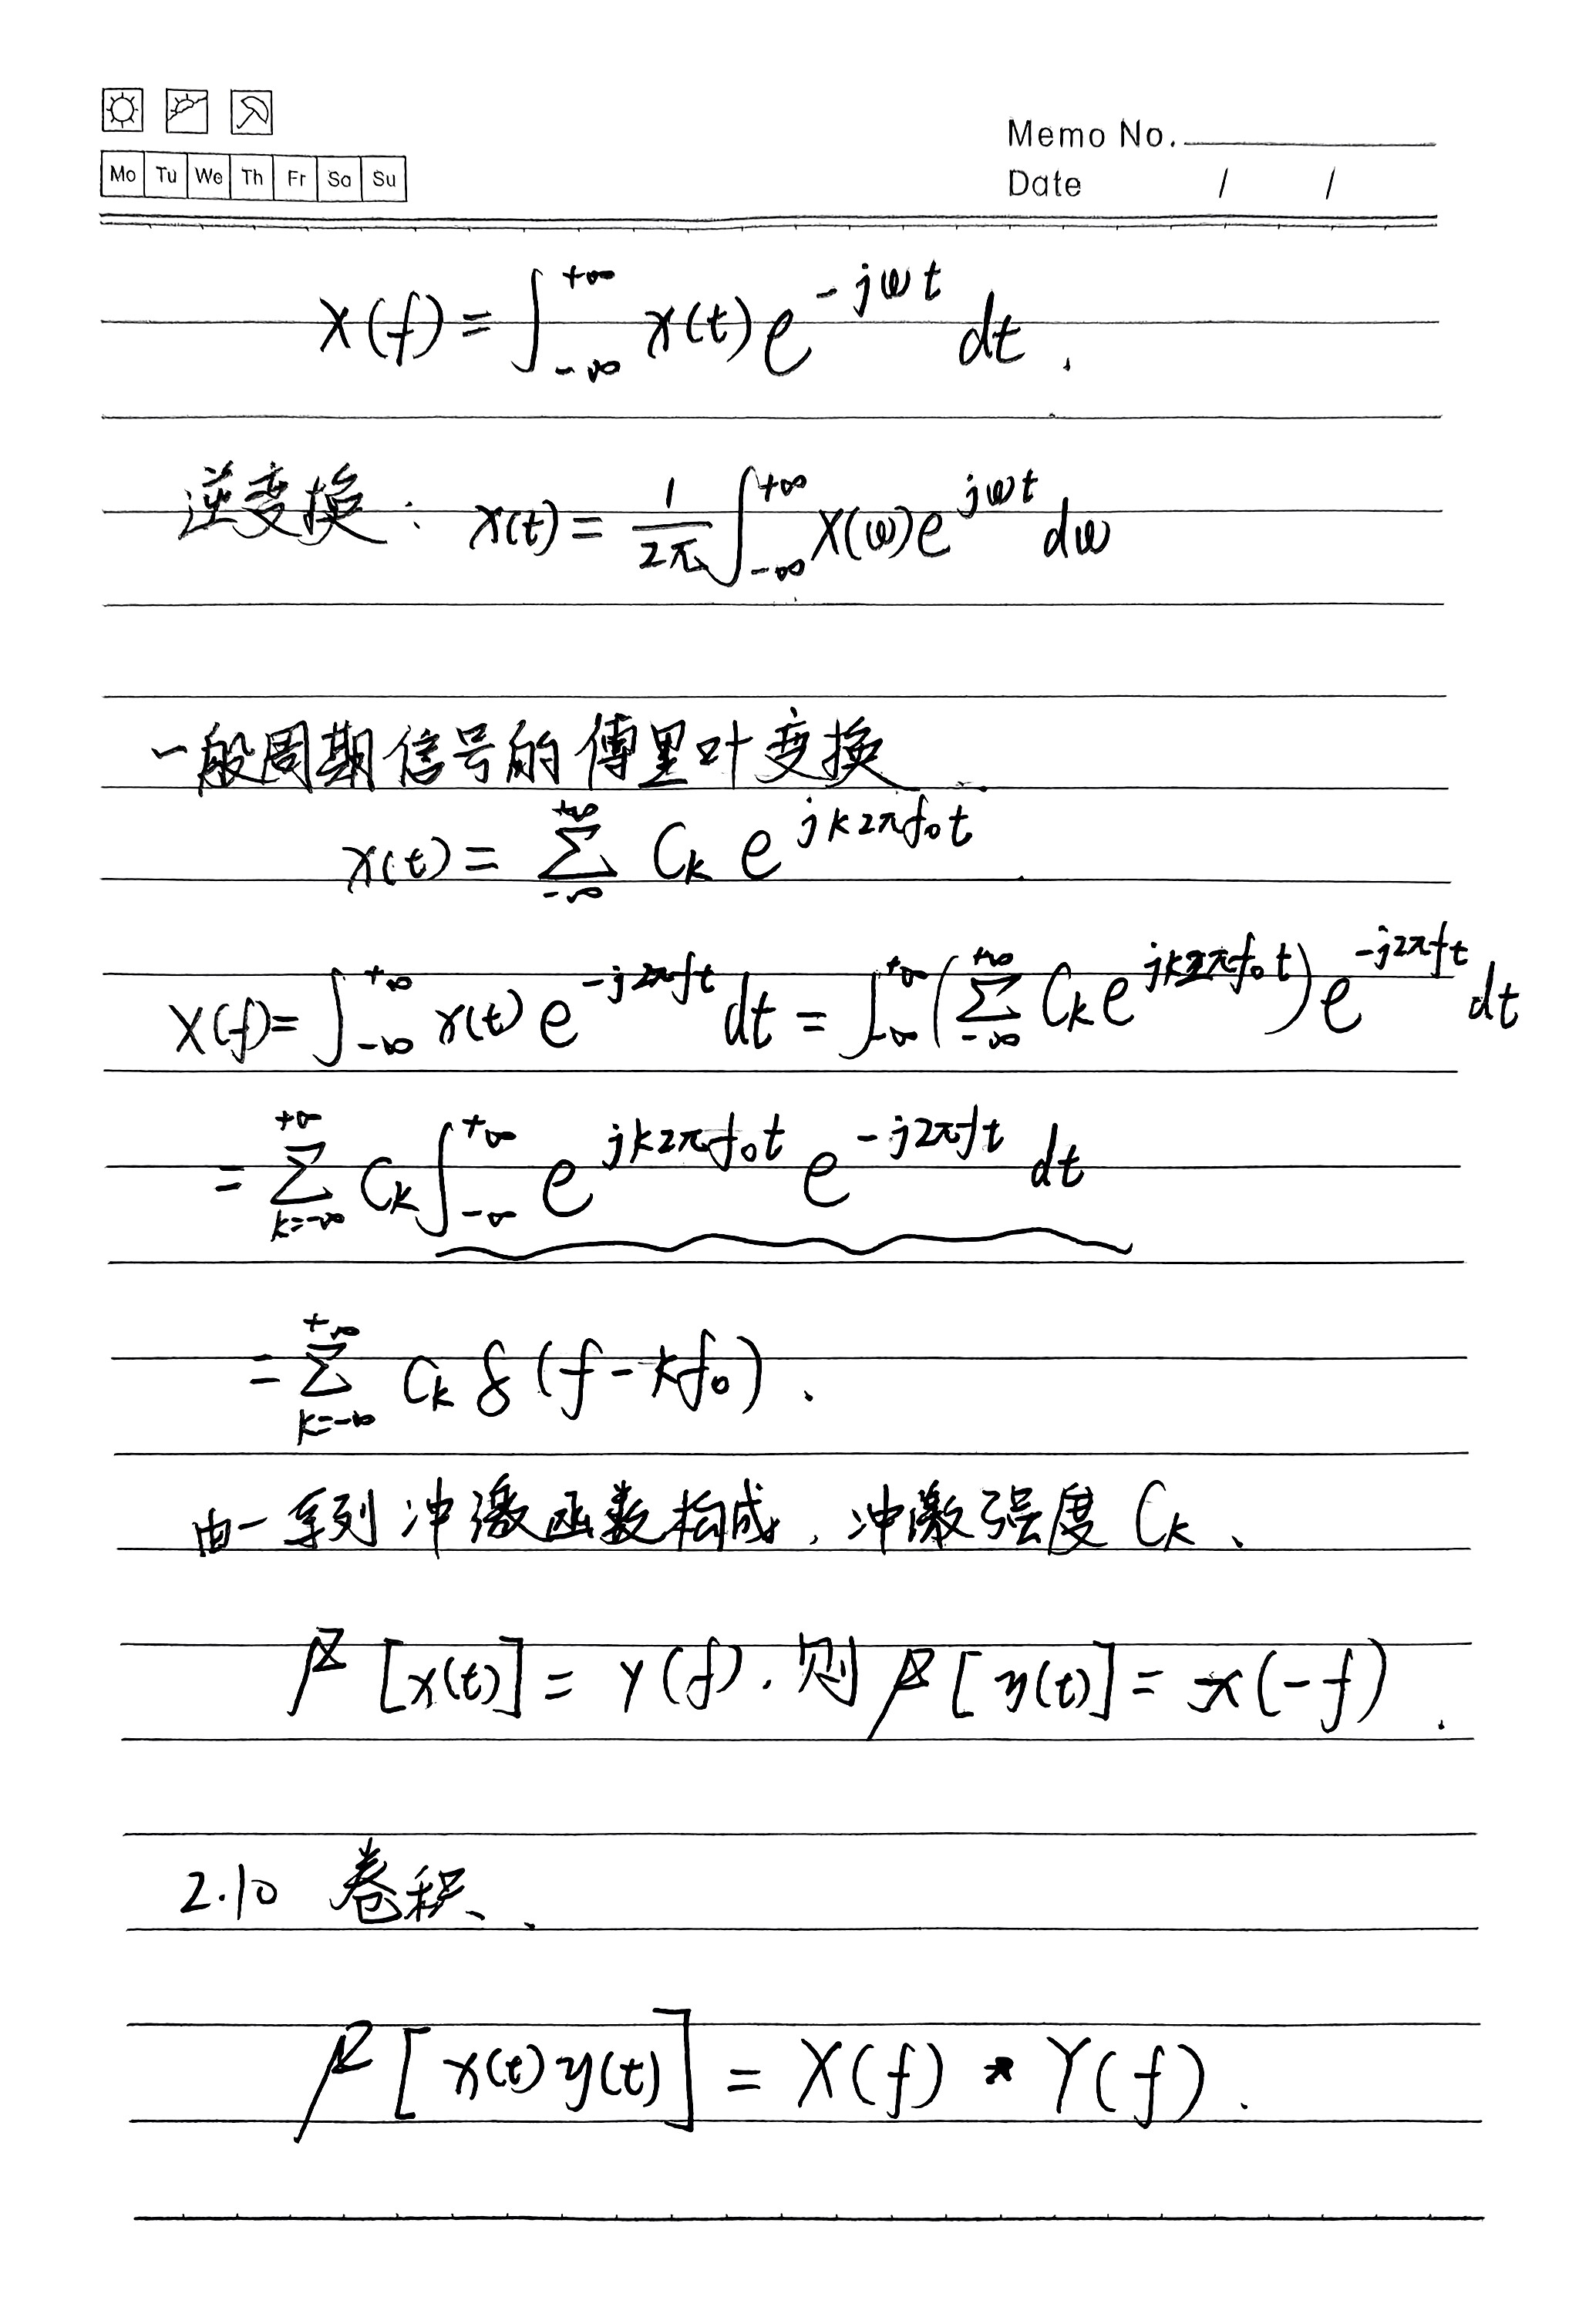 Memo No.
Mo Tu We Th Fr Sa Su
Date / /
X(f) = ∫_{-∞}^{+∞} x(t) e^{-jωt} dt.
逆变换: x(t) = \frac{1}{2π} ∫_{-∞}^{+∞} X(ω) e^{jωt} dω
一般周期信号的傅里叶变换
x(t) = ∑_{-∞}^{+∞} C_k e^{jk2πf_0t}
X(f) = ∫_{-∞}^{+∞} x(t) e^{-j2πft} dt = ∫_{-∞}^{+∞} (∑_{-∞}^{+∞} C_k e^{jk2πf_0t}) e^{-j2πft} dt
= ∑_{k=-∞}^{+∞} C_k ∫_{-∞}^{+∞} e^{jk2πf_0t} e^{-j2πft} dt
= ∑_{k=-∞}^{+∞} C_k δ(f - kf_0).
由一系列冲激函数构成, 冲激强度 C_k、
F[x(t)] = Y(f). 则 F[y(t)] = x(-f).
2.10 卷积、
F[x(t)y(t)] = X(f) * Y(f).